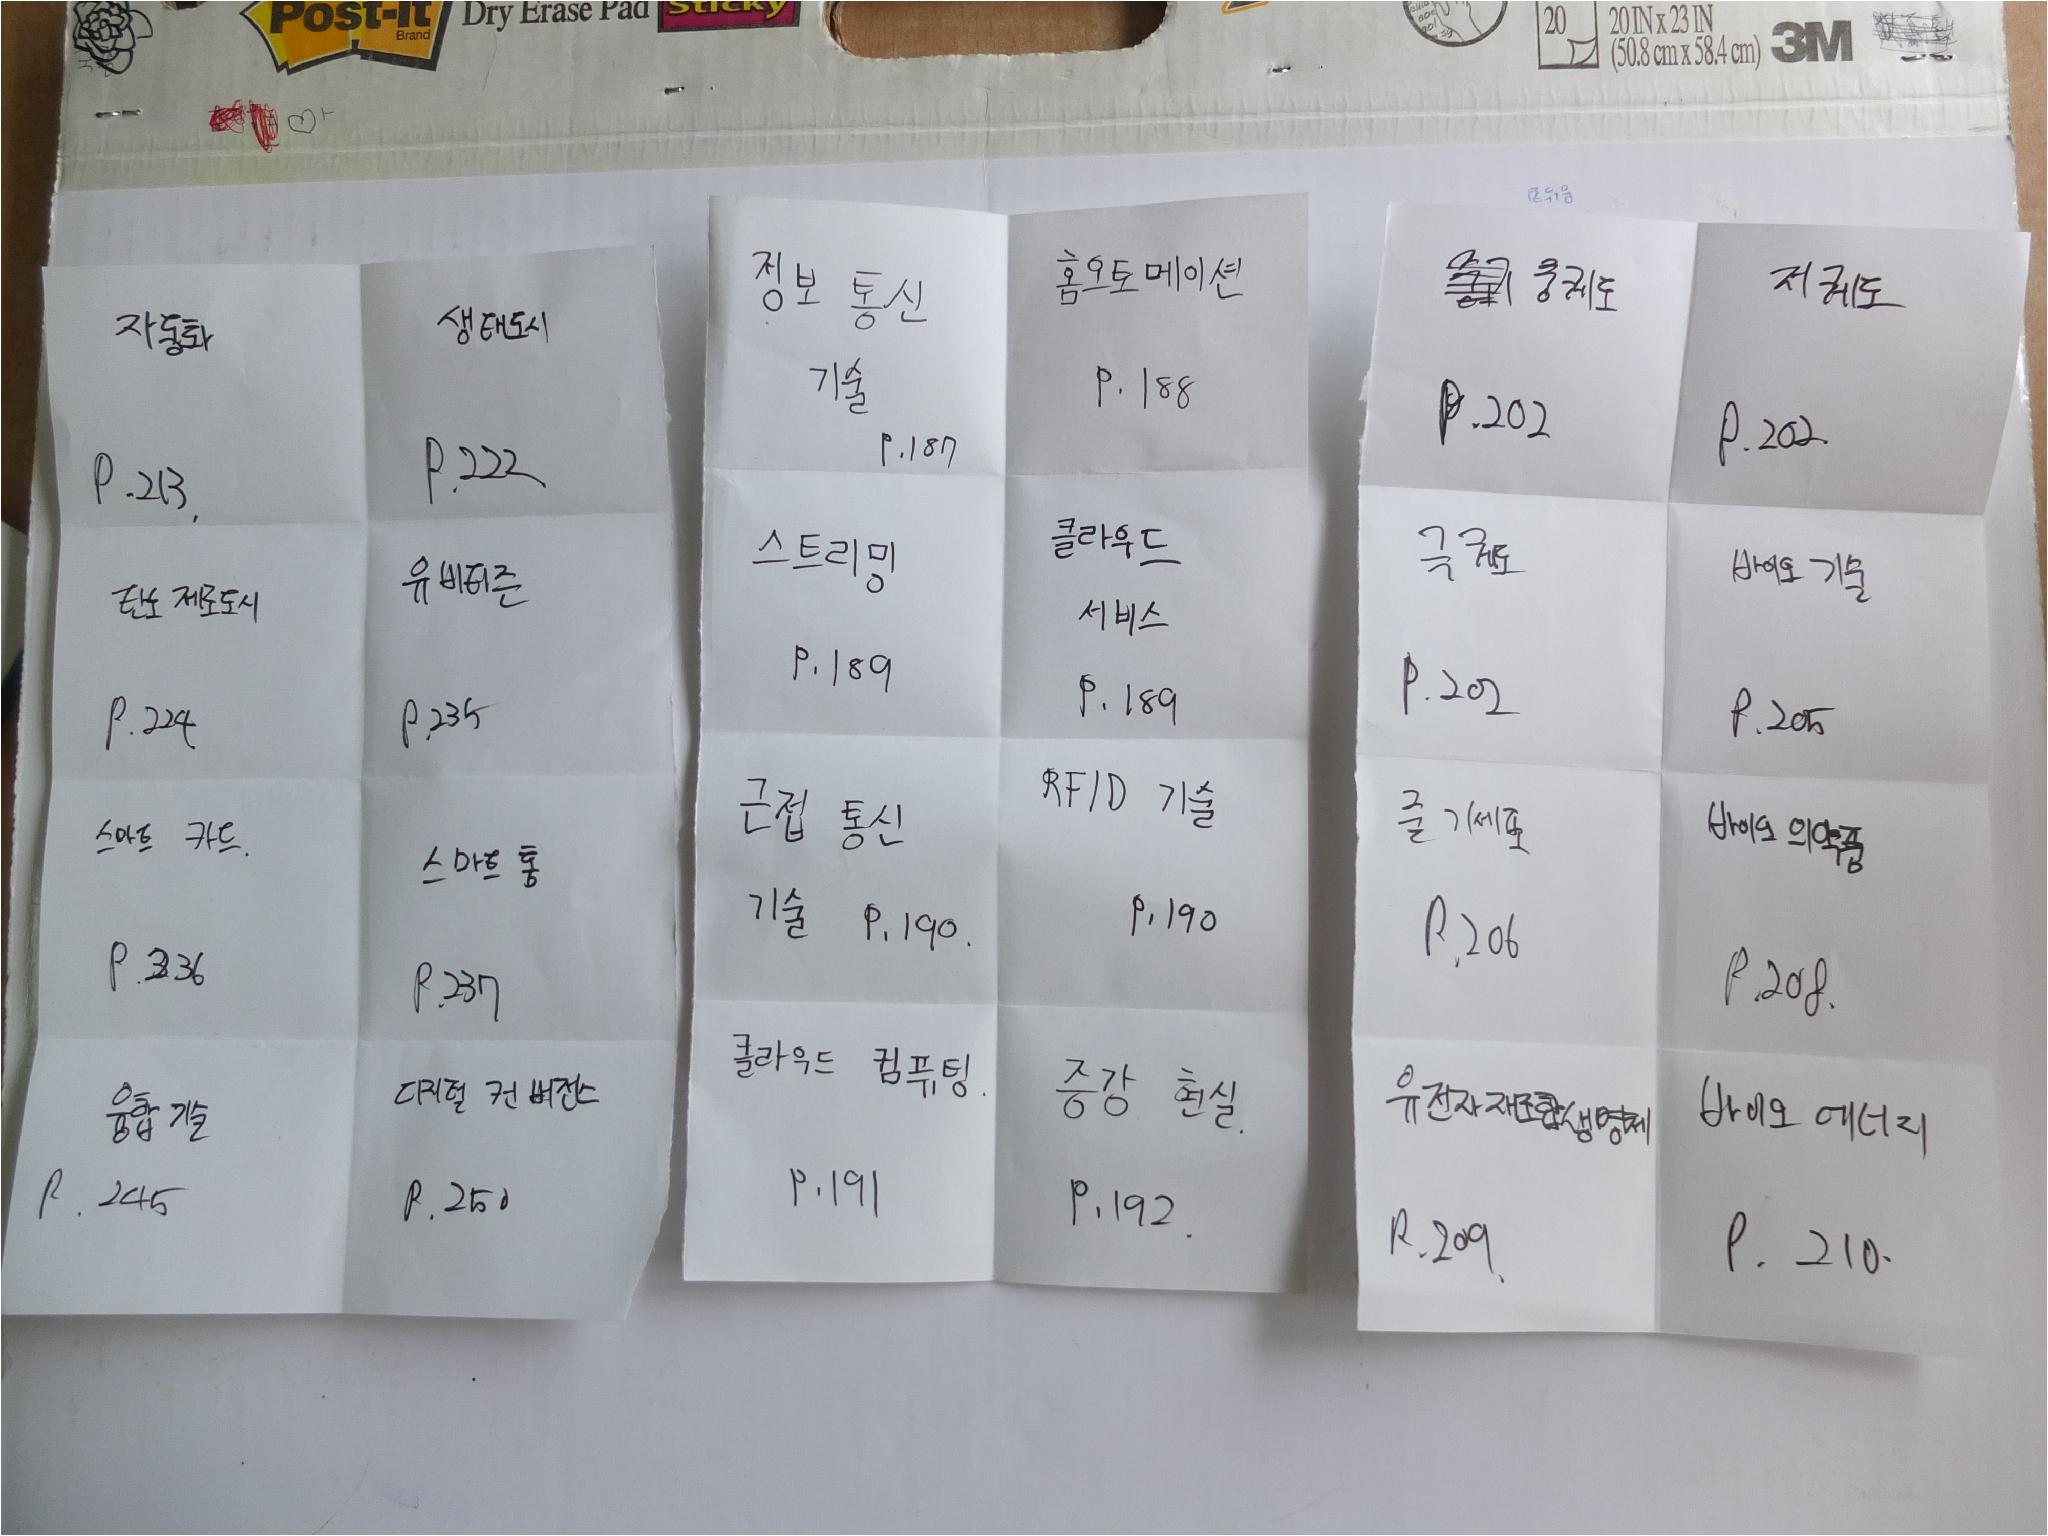 Post-it
Brand
Dry Erase Pad
Sticky
20
20 IN x 23 IN
(50.8 cm x 58.4 cm)
3M
자동화
P.213
생태도시
P.222
탄소 제로도시
P.224
유비티즌
P.235
스마트 카드.
P.236
스마트 홈
P.237
융합 기술
P.245
디지털 컨버전스
P.250
정보 통신
기술
P.187
홈오토메이션
P.188
스트리밍
P.189
클라우드
서비스
P.189
근접 통신
기술 P.190.
RFID 기술
P.190
클라우드 컴퓨팅.
P.191
증강 현실.
P.192.
중궤도
P.202
저궤도
P.202.
극궤도
P.202
바이오 기술
P.205
줄기세포
P.206
바이오 의약품
P.208.
유전자재조합생명체
P.209.
바이오 에너지
P. 210.